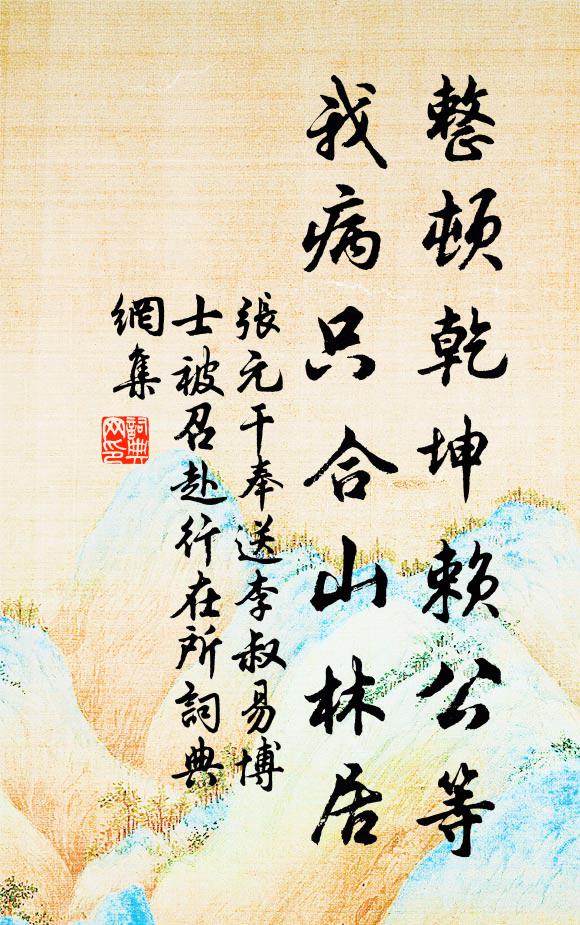 整頓乾坤賴公等
我病只合山林居
張元干奉送李叔易博
士被召赴行在所詞典
網集
詞典
网印